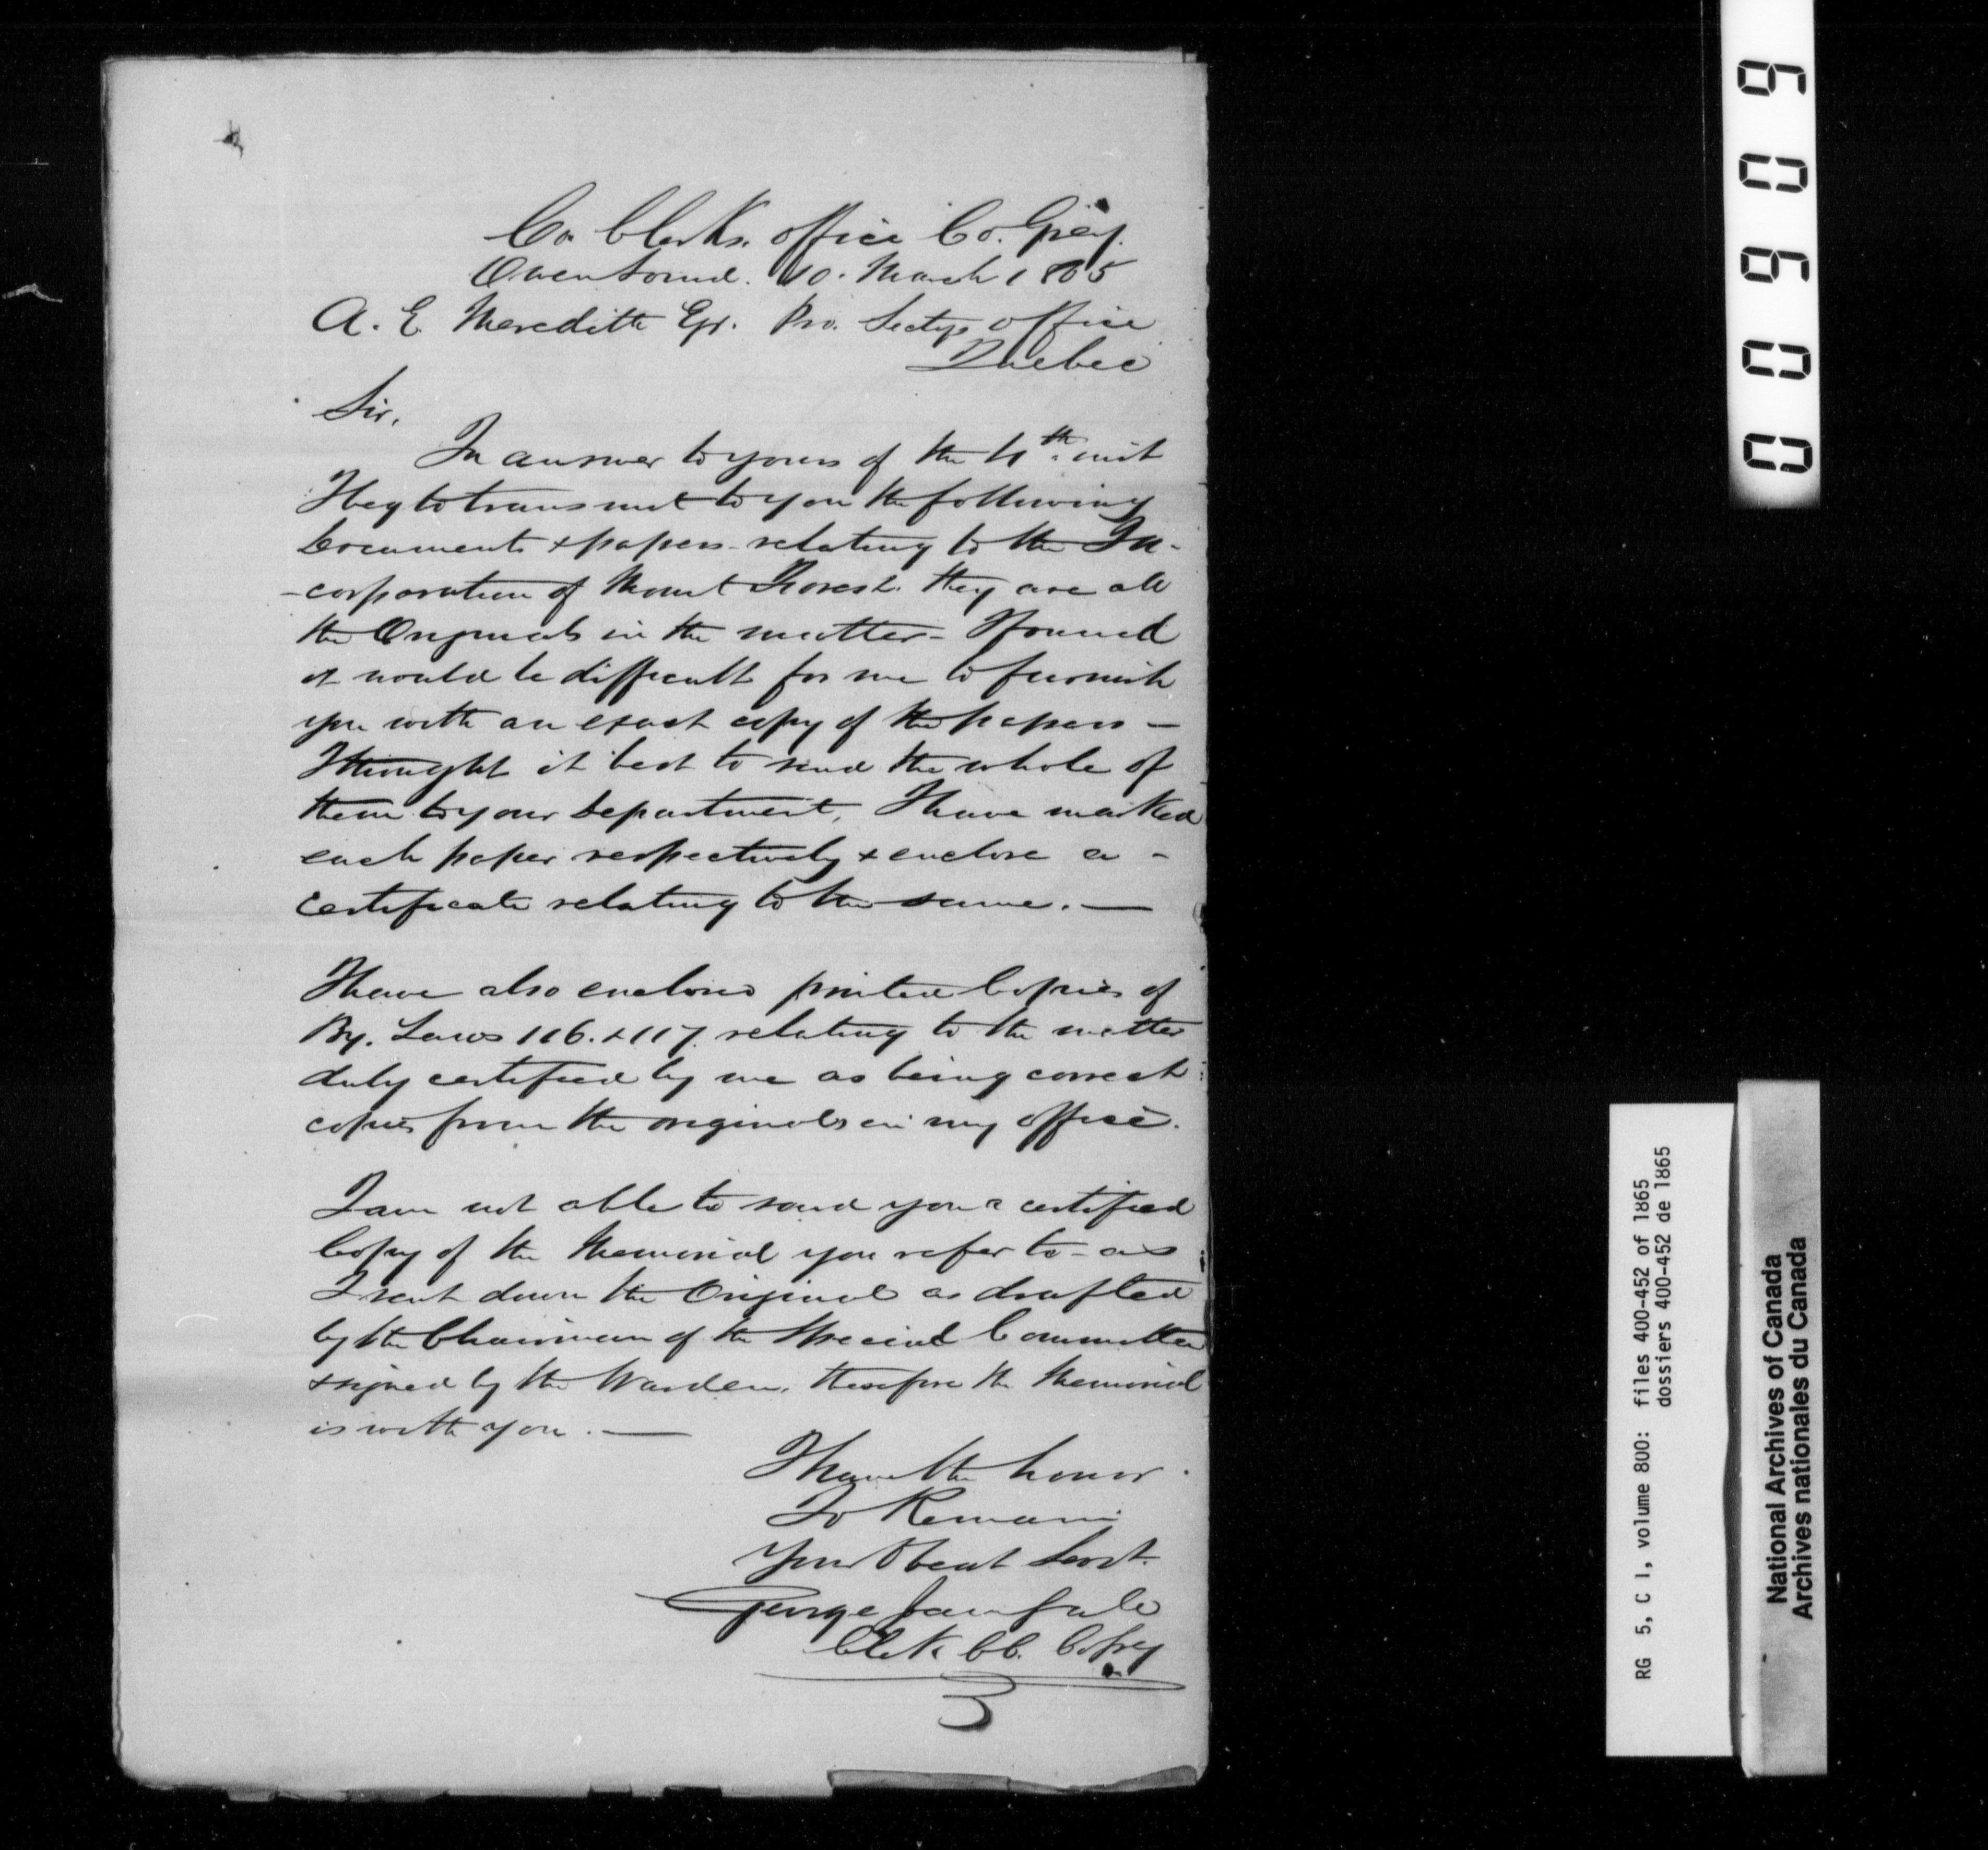 Co. Clerks. office Co. Grey.
Owen Sound. 10. March 1865
A. E. Meredith Esqr. Pro. Sectys office
Quebec
Sir,
In answer to yours of the 4th. inst
I beg to transmit to you the following
Documents & papers relating to the In-
-corporation of Mount Forest. they are all
the Originals in the matter - I found
it would be difficult for me to furnish
you with an exact copy of the papers -
I thought it best to send the whole of
them to your Department, I have marked
each paper respectively & enclose a -
certificate relating to the same. —
I have also enclosed printed Copies of
By. Laws 116. & 117. relating to the matter
duly certified by me as being correct
copies from the originals in my office.
I am not able to send you a certified
Copy of the Memorial you refer to - as
I sent down the Original as drafted
by the Chairman of the Special Committee
& signed by the Warden, therefore the Memorial
is with you. —
I have the honor
To Remain
Your Obent Servt.
George
Clerk CC. Co Grey
60600
RG 5, C 1, volume 800: files 400-452 of 1865
dossiers 400-452 de 1865
National Archives of Canada
Archives nationales du Canada